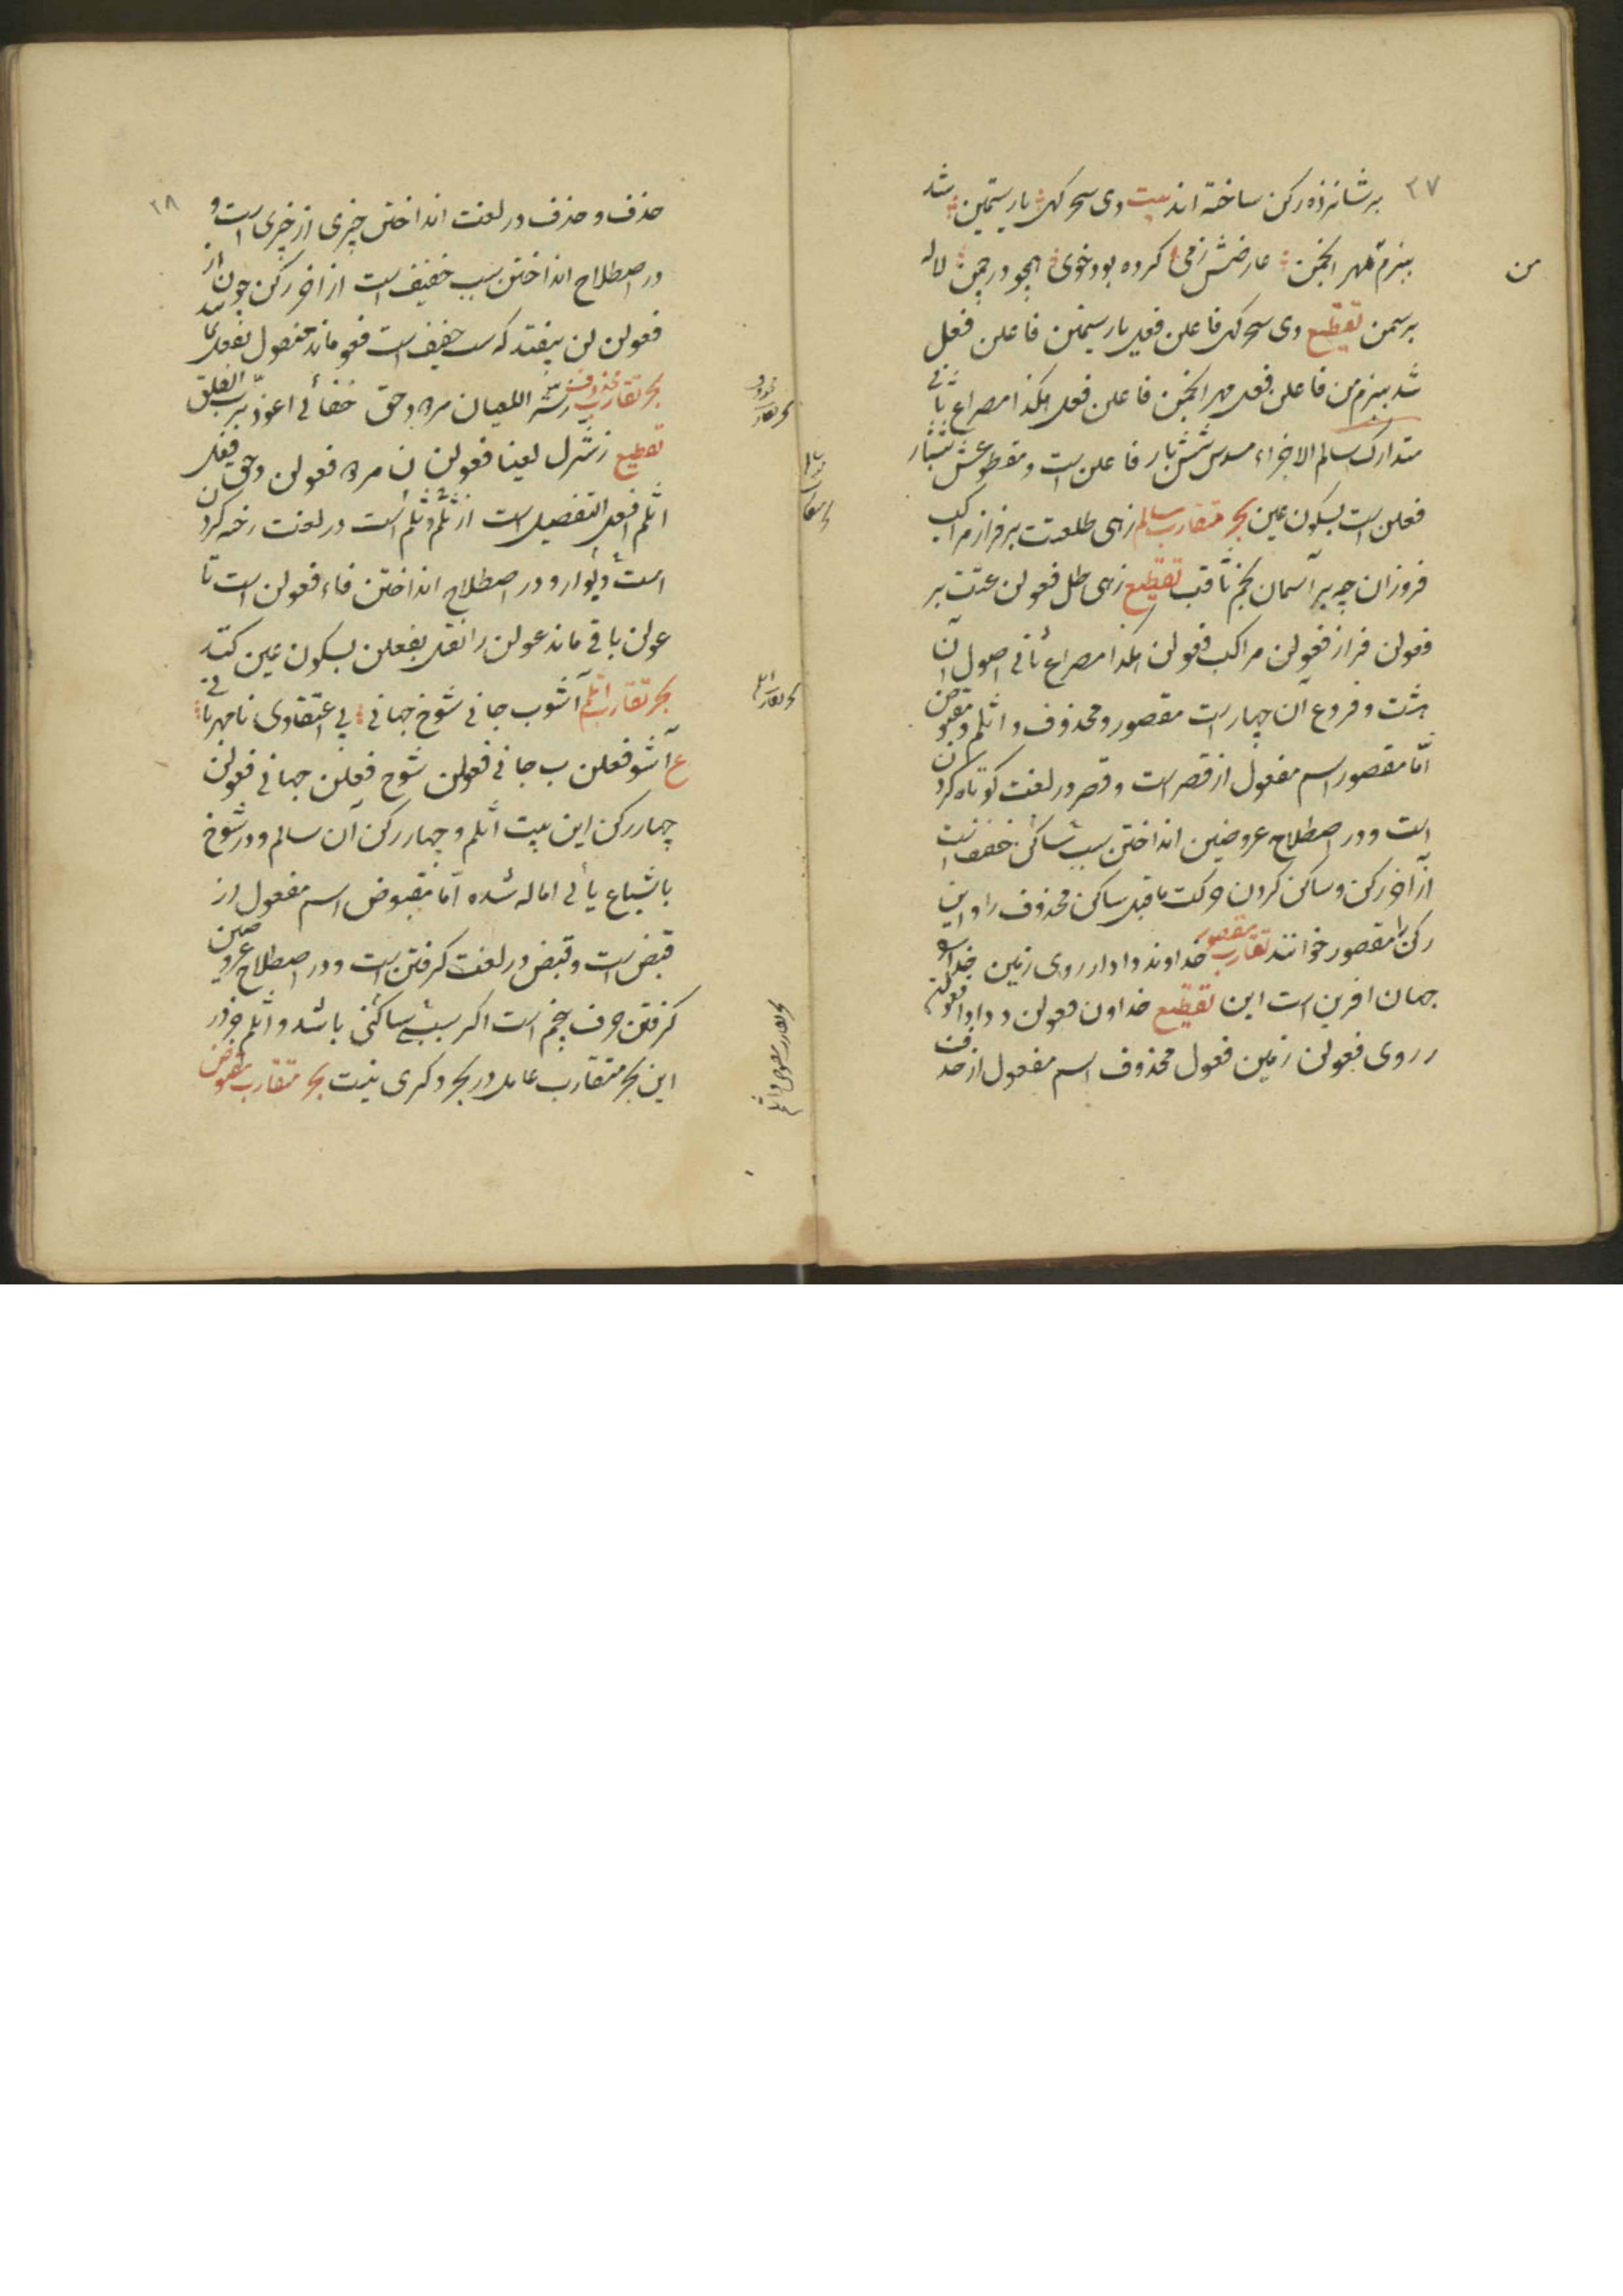 ۳۷
بر شانزده رکن ساخته اند بیت دی سحر کهی یار سیمین شد
ببزم مهر انجمن عارضش زمی کرده بود خوی همچو در چمن لاله
من
بر سمن تقطیع دی سحر کهی فاعلن فعل یار سیمتن فاعلن فعل
شد ببزم من فاعلن فعل مهر انجمن فاعلن فعل هکذا مصراع ثانی
متدارک سالم الاجزاء مسدس شش بار فاعلن است و مقطوعش شش بار
فعلن است بسکون عین بحر متقارب سالم زهی طلعتت بر فراز مراکب
فروزان چو بر آسمان نجم ثاقب تقطیع زهی طل فعولن عتت بر
فعولن فراز فعولن مراکب فعولن هکذا مصراع ثانی اصول آن
هشت و فروع آن چهار است مقصور و محذوف و اثلم و مقبوض
امّا مقصور اسم مفعول از قصر است و قصر در لغت کوتاه کردن
است و در اصطلاح عروضین انداختن سبب ساکن خفیف است
از آخر رکن و ساکن کردن حرکت ماقبل ساکن محذوف را و این
رکن را مقصور خوانند تقارب مقصور خداوند و ادار روی زمین
جهان افرین است این تقطیع خداون فعولن د دادا فعولن
ر روی فعولن زمین فعول محذوف اسم مفعول از حذف
۳۸
حذف و حذف در لغت انداختن چیزی از چیزی است و
در اصطلاح انداختن سبب خفیف است از اخر رکن چون از
فعولن لن بیفتد که سبب خفیف است فعو ماند منقول بفعل
بحر تقارب محذوف اللعیان مره و حق اعوذ برب الفلق
تقطیع زشرل لعینا فعولن ن مره فعولن وحق فعل
اثلم افعل التفضیل است از ثلم و ثلم است در لغت رخنه کردن
است دیوار و در اصطلاح انداختن فاء فعولن است تا
عولن باقی ماند عولن را نقل بفعلن بسکون عین کنند
بحر تقارب اثلم آشوب جانی شوخ جهانی بی اعتقادی نامهربانی
ع آشو فعلن ب جانی فعولن شوخ فعلن جهانی فعولن
چهار رکن این بیت اثلم و چهار رکن آن سالم و در شوخ
باشباع یائی اماله شده امّا مقبوض اسم مفعول از
قبض است و قبض در لغت کرفتن است و در اصطلاح عروضین
کرفتن حرف پنجم است اکر سبب ساکنی باشد و اثلم جز در
این بحر متقارب عامل در بحر دکری نیست بحر متقارب مقبوض